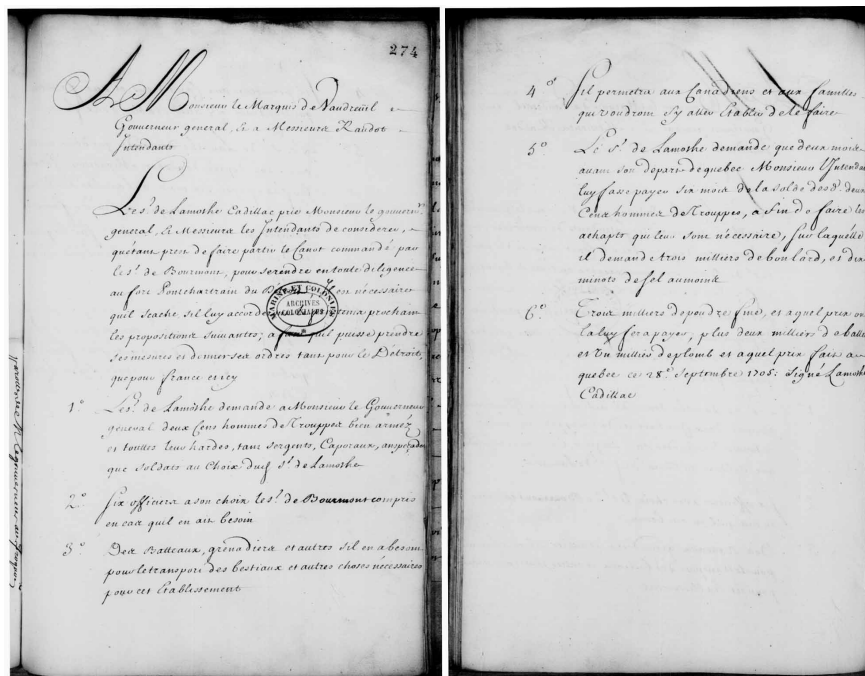 274
A Monsieur le Marquis de Vaudreüil
Gouverneur general, & a Messieurs Raudot
Intendants
Le Sr. de Lamothe Cadillac prie Monsieur le gouverneur
general, & Messieurs les Intendants de considerer,
quétant prest de faire partir le Canot commandé par
le Sr. de Bourmont, pour se rendre en toute diligence
au fort Pontchartrain du necessaire
quil scache, sil luy accorde prochain
les propositions suivantes, a fin quil puisse prendre
ses mesures et donner ses ordres tant pour le Détroit,
que pour france et icy
MARINE ET COLONIES
ARCHIVES
COLONIALES
1o. Le Sr. de Lamothe demande a Monsieur le Gouverneur
general deux Cens hommes de Trouppes bien arméz
et touttes leurs hardes, tant sergents, Caporaux, anspeçades
que soldats au Choix dud. Sr. de Lamothe
2o. Six officiers a son choix le Sr. de Bourmont compris
en cas quil en ait besoin
3o. Des Batteaux, et autres sil en a besoin
pour le transport des bestiaux et autres choses nécessaires
pour cet Etablissement
4o. Sil permetra aux Canadiens et aux familles
qui voudront sy aller Etablir de le faire
5o. Le Sr. de Lamothe demande que deux mois
avant son depart de quebec Monsieur l'Intendant
luy fasse payer six mois de la solde desd. deux
Cens hommes de Trouppes, a fin de faire les
achapts qui leur sont nécessaire, sur laquélle
il demande trois milliers de bon lard, et dix
minots de sel au moins
6o. Trois milliers de poudre fine, et a quel prix on
la luy fera payer, plus deux milliers de balles
et un millier de plomb et a quel prix fait a
quebec ce 28e. Septembre 1705: Signé Lamothe
Cadillac